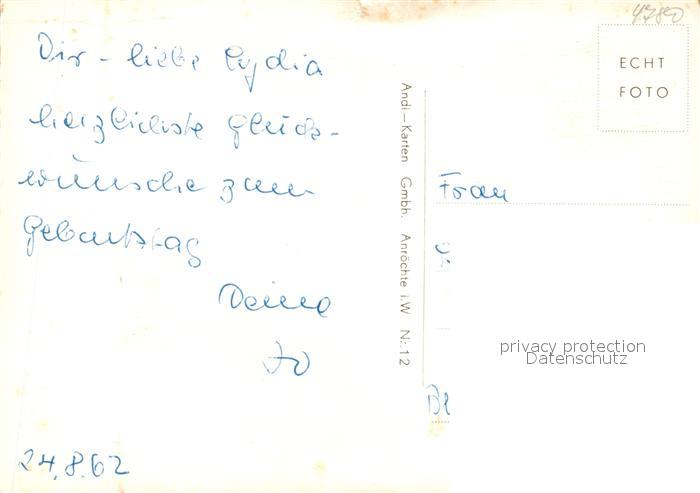 Dir - liebe Lydia
herzlichste Glück-
wünsche zum
Geburtstag
Deine
Jo
24.8.62
Andi-Karten Gmbh. Anröchte i.W Nr. 12
4780
ECHT
FOTO
Frau
privacy protection
Datenschutz